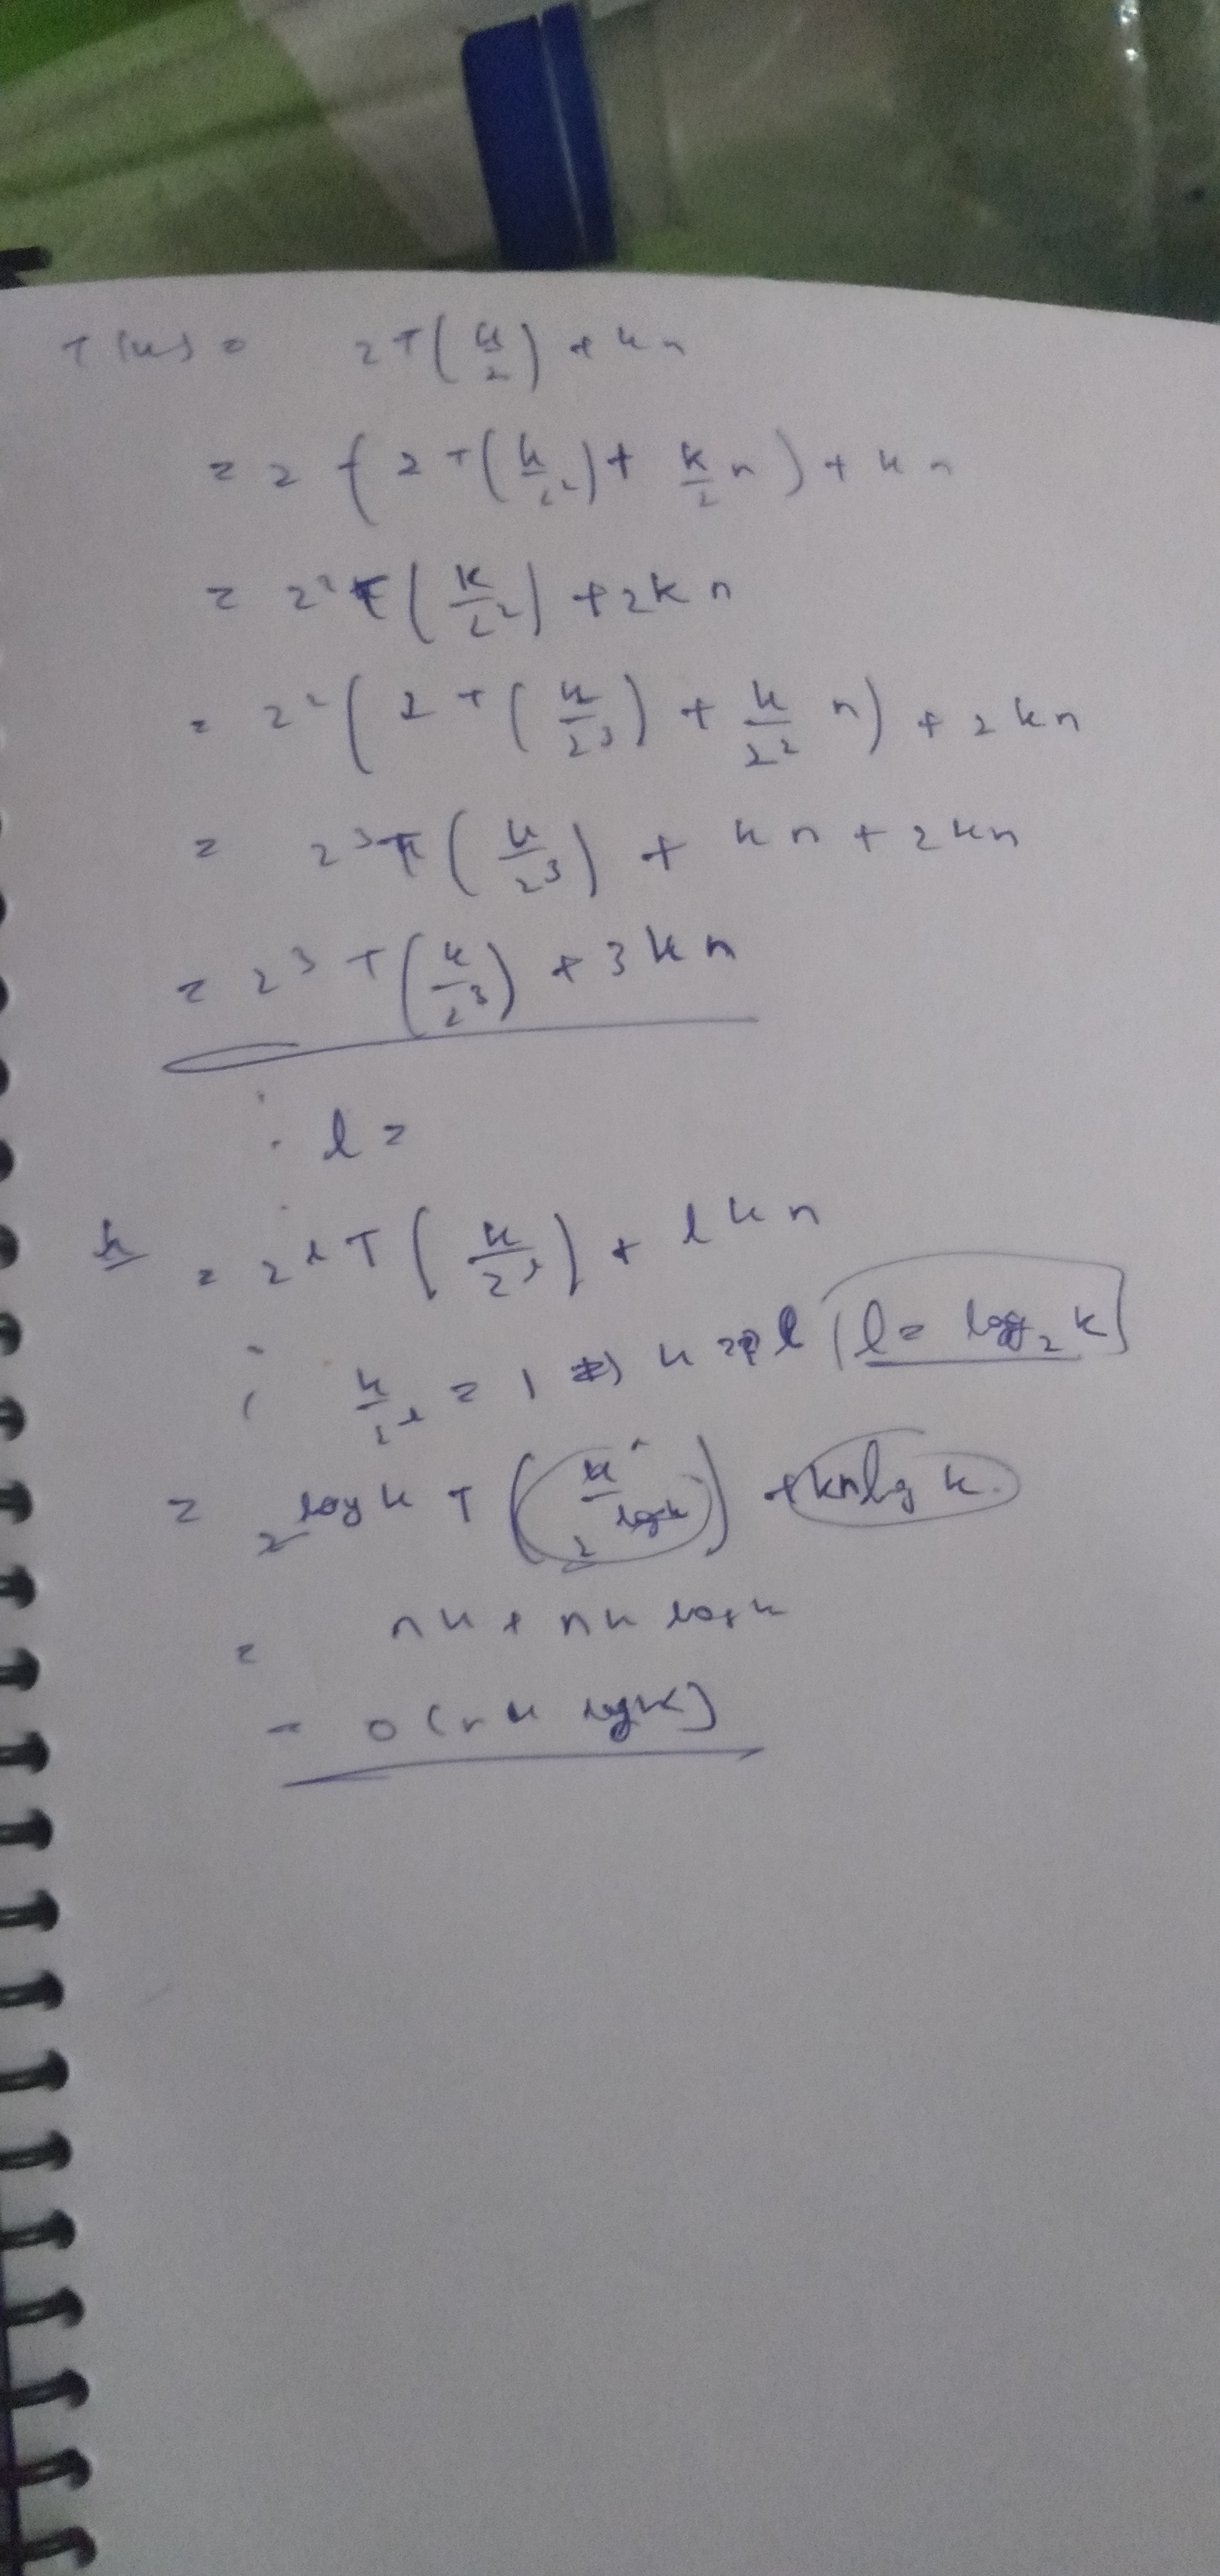 T(k) = 2T(k/2) + kn
= 2 { 2T(k/2²) + k/2 n ) + kn
= 2² T(k/2²) + 2kn
= 2² ( 2T(k/2³) + k/2² n ) + 2kn
= 2³ T(k/2³) + kn + 2kn
= 2³ T(k/2³) + 3kn
l =
= 2^l T(k/2^l) + lkn
k/2^l = 1 l = log₂ k
= 2^log k T(k/2^log k) + kn log k.
= nk + nk log k
= O(nk log k)